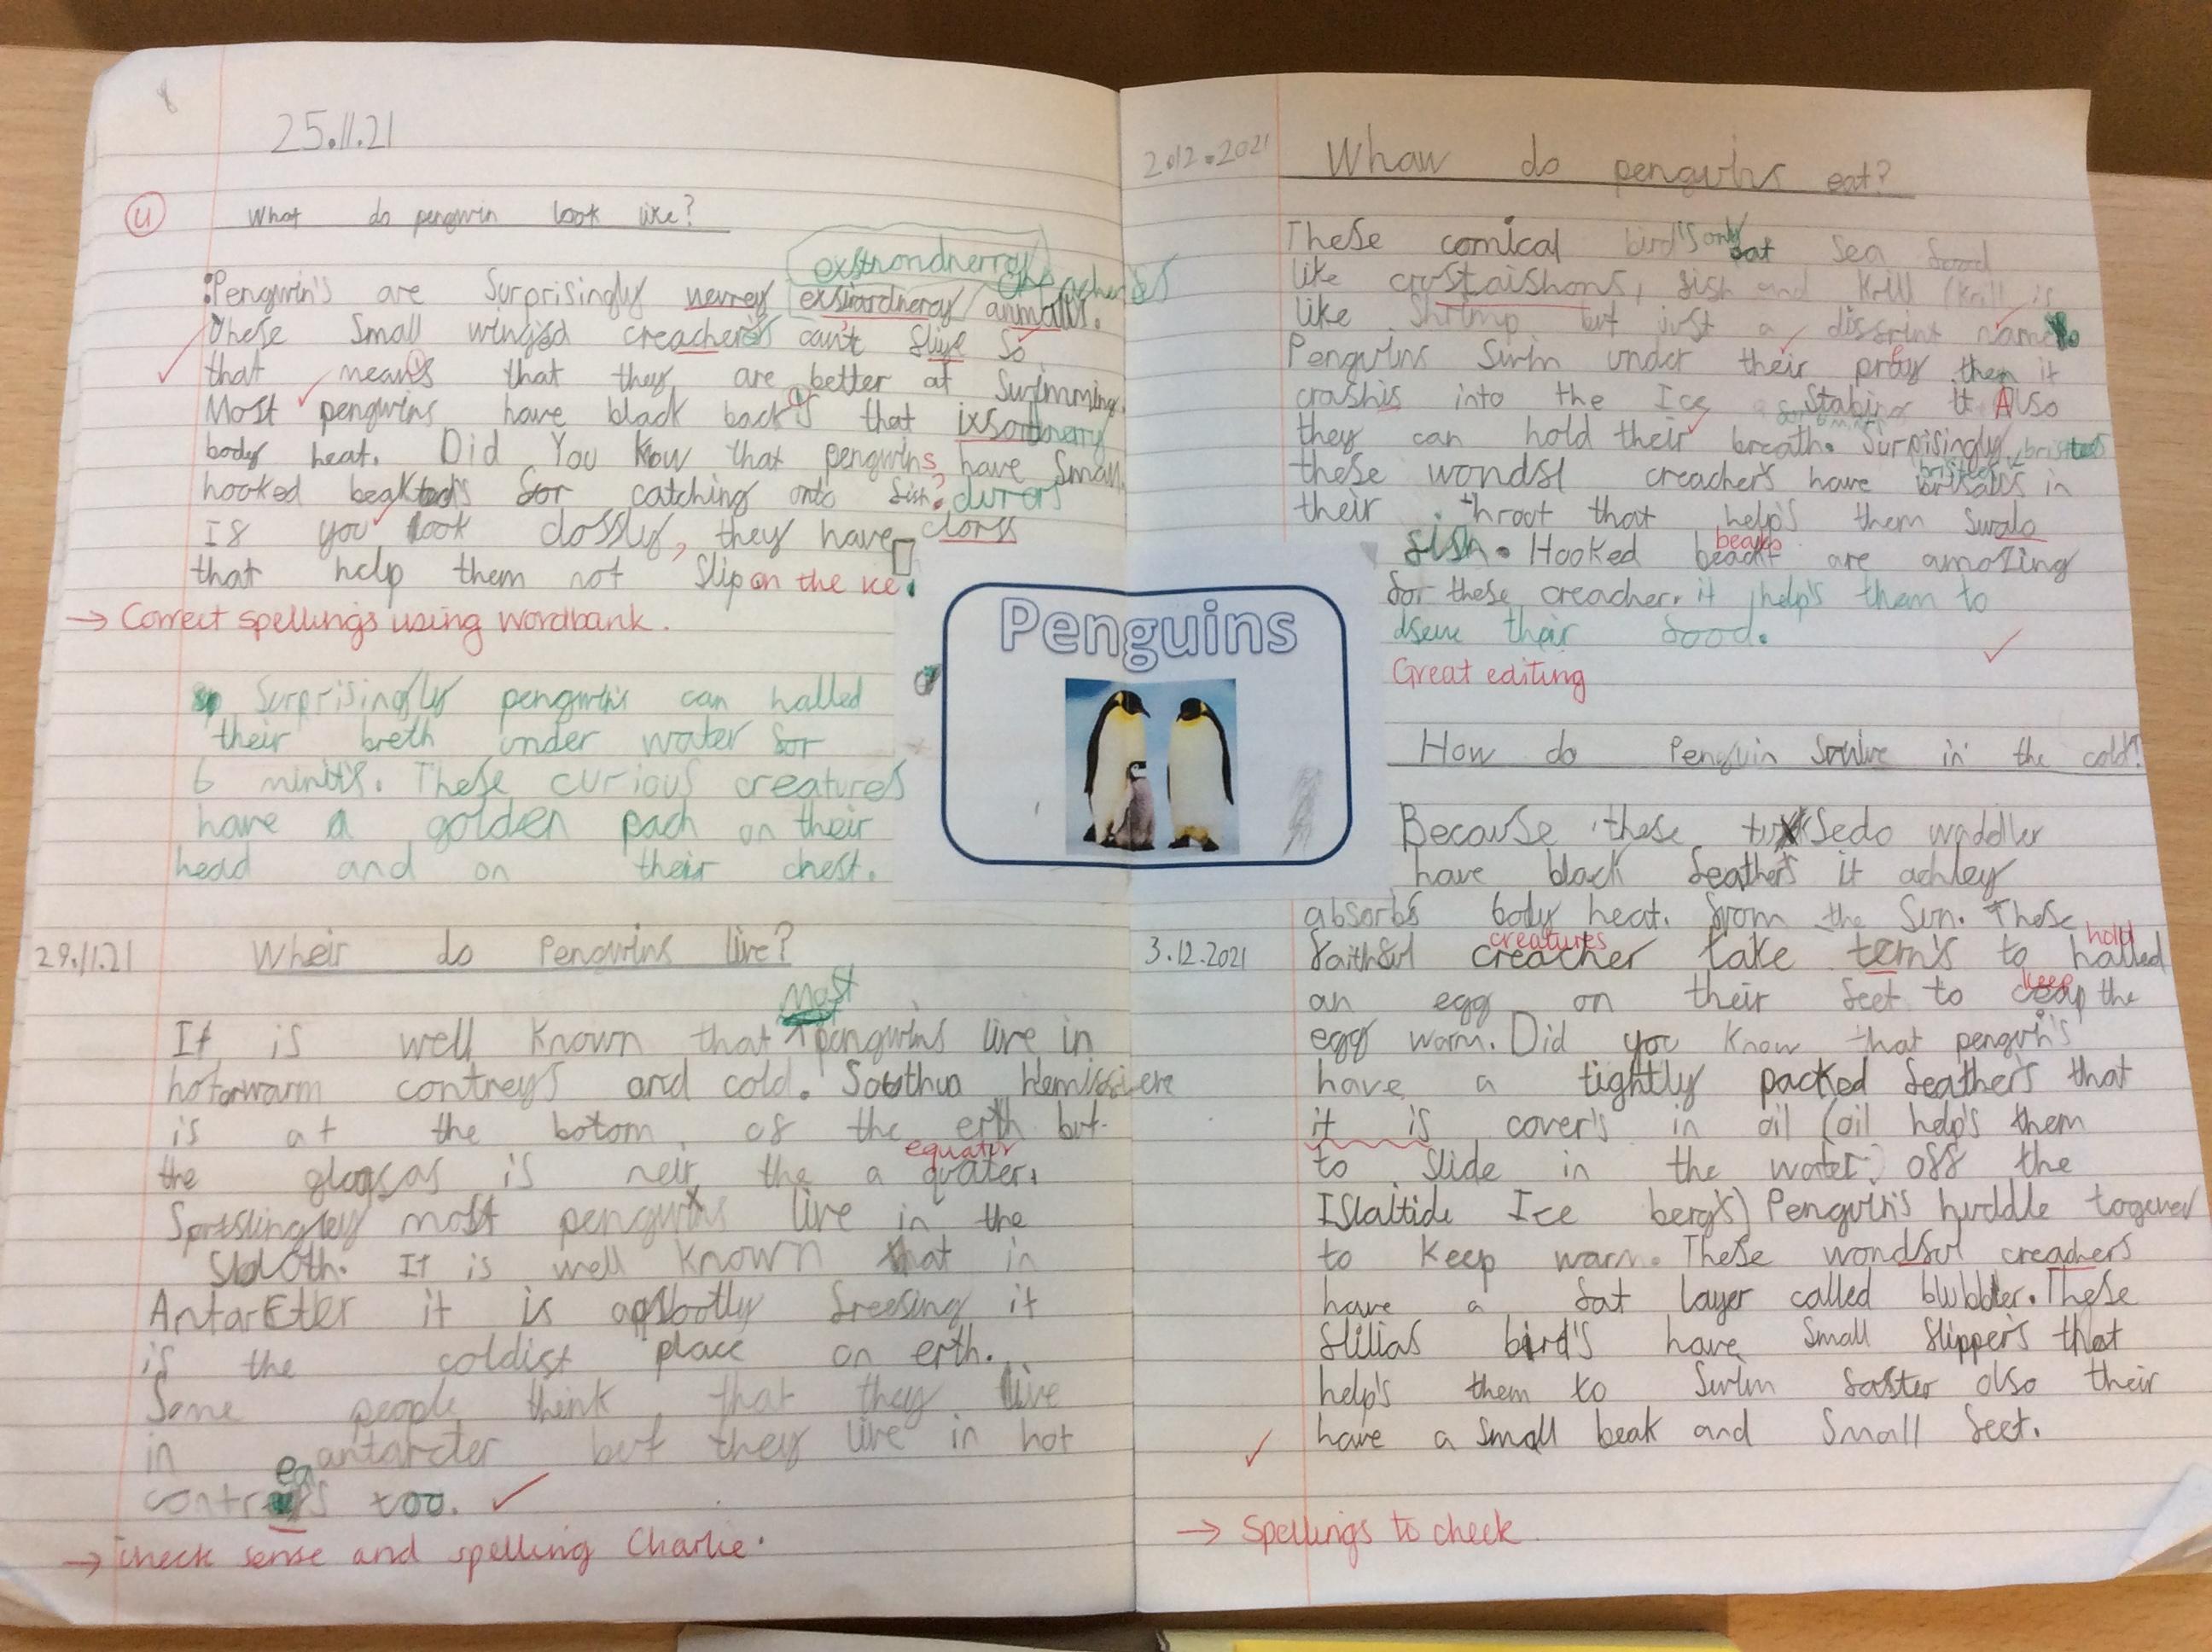 8
25.11.21
U
What do pengwin look like?
exstrondnerray
Pengwin's are Surprisingly animalls.
these small creacher's can't fliye so
that means that they are better at Swimming.
Most pengwins have black backs that
body heat. Did You Know that pengwins have small
hooked for catching onto fish?
If you look clossly, they have clorss
that help them not slip on the ice.
→ Correct spellings using wordbank.
Surprisingly pengwin's can halled
their breth under water for
6 minits. These curious creatures
have a golden pach on their
head and on their chest.
29.11.21
Wheir do Pengwins live?
Most
It is well known that pengwins live in
hot or warm contreys and cold.
is at the botom of the erth but
equator
the is neir the a quater.
most pengwins live in the
It is well known that in
it is freesing it
is the coldist place on erth.
Some people think that they live
in antarcter but they live in hot
too.
→ check sense and spelling Charlie.
Penguins
2.12.2021
Whaw do penguins eat?
These comical bird's only eat sea food
like crostaishons, fish and Krill (Krill is
like Shrimp but just a name
Penguins Swim under their then it
crashis into the Ice Stabing it Also
they can hold their breath. Surpisingly,
these wondfl creacher's have in
their throat that help's them Swalo
beaks
fish. Hooked are amazing
for these creacher. it help's them to
their food.
Great editing
How do Penguin in the cold?
Because these waddler
have black feather's it achley
absorbs body heat. from the Sun. These
3.12.2021
creatures
hold
faithful creacher take tern's to halled
keep
an egg on their feet to the
egg warm. Did you know that penguin's
have a tightly packed feather's that
it is cover's in oil (oil help's them
to slide in the water) off the
Ice berg's) Penguin's huddle
to keep warm. These wondful creachers
have a fat layer called blubber. These
bird's have small flipper's that
help's them to Swim faster also their
have a small beak and small feet.
→ Spellings to check